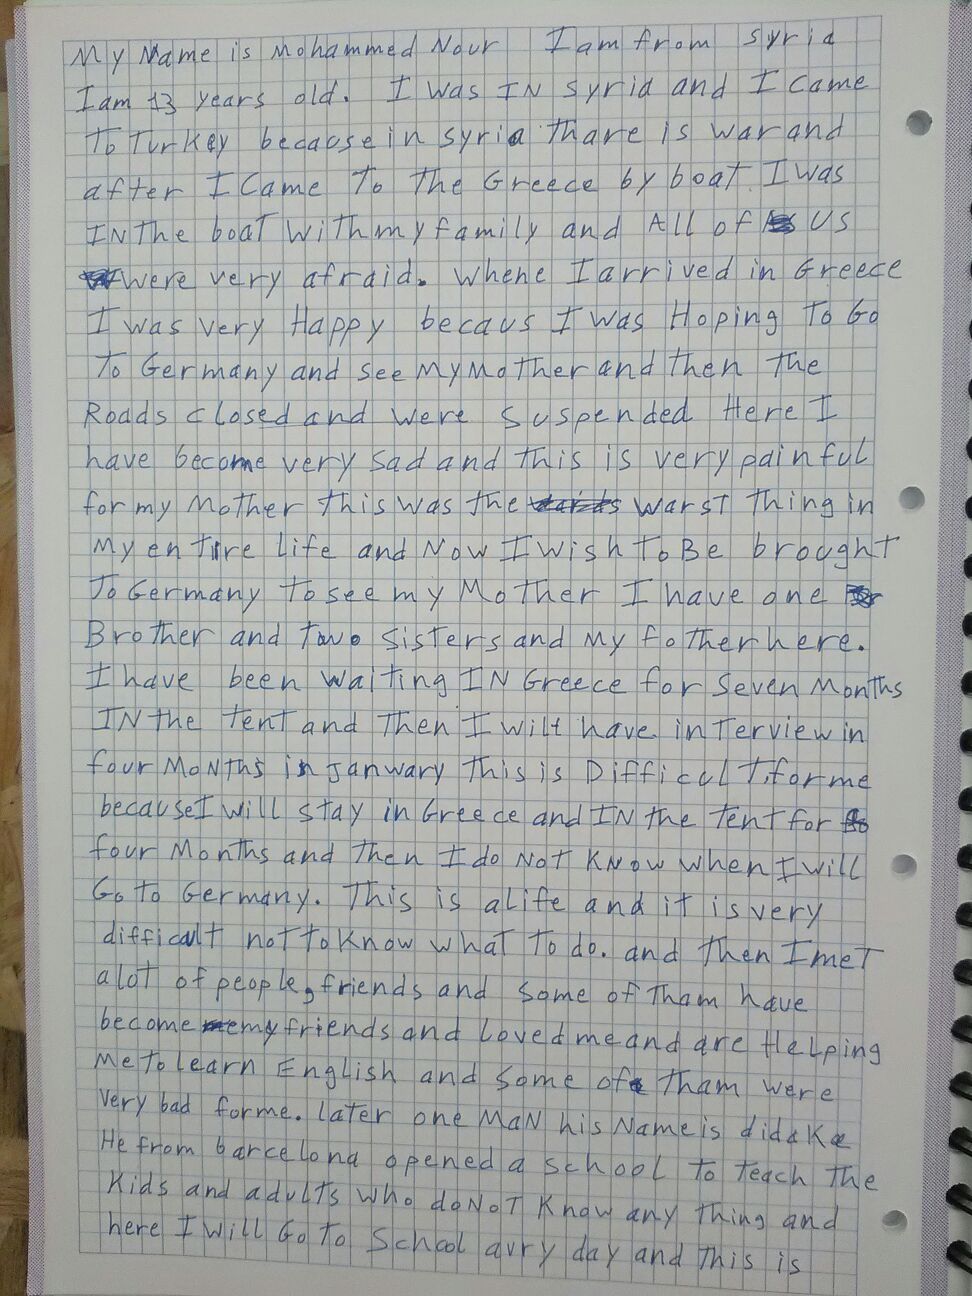 My Name is Mohammed Nour I am from Syria
I am 13 years old. I was IN Syria and I came
To Turkey because in Syria thare is war and
after I came To The Greece by boat. I was
IN the boat with my family and All of us
were very afraid. whene I arrived in Greece
I was very Happy becaus I was Hoping To Go
To Germany and see My Mother and then the
Roads closed and were suspended Here I
have become very sad and this is very painful
for my Mother this was the warst thing in
My entire life and Now I wish To Be brought
To Germany to see my Mother I have one
Brother and two sisters and my fother here.
I have been waiting IN Greece for Seven Months
IN the tent and then I will have interview in
four MoNths in janwary this is Difficult for me
because I will stay in Greece and IN the tent for
four Months and then I do NoT KNow when I will
Go to Germany. This is a life and it is very
difficult not to know what to do. and then I meT
a lot of people, friends and some of tham have
become my friends and Loved me and are Helping
Me to learn English and some of tham were
very bad for me. later one MaN his Name is didaKe
He from barcelona opened a school to teach the
Kids and adults who do NoT Know any thing and
here I will Go To School avry day and this is